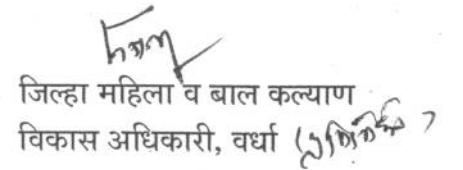 जिल्हा महिला व बाल कल्याण
विकास अधिकारी, वर्धा